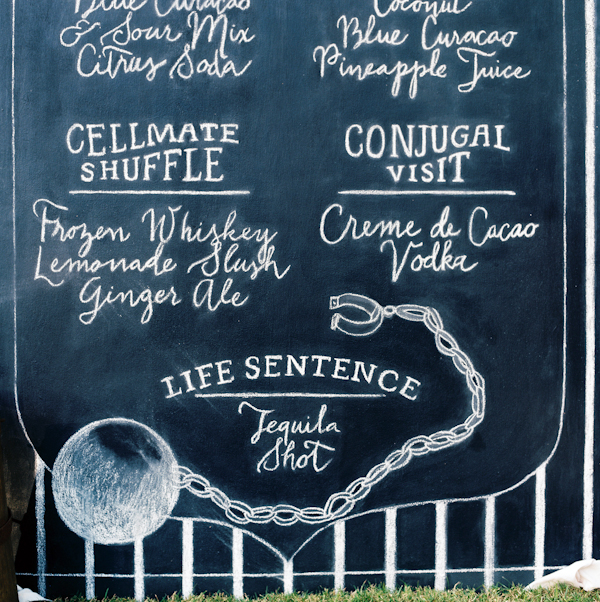 Blue Curaçao
& Sour Mix
Citrus Soda
Coconut
Blue Curacao
Pineapple Juice
CELLMATE
SHUFFLE
Frozen Whiskey
Lemonade Slush
Ginger Ale
CONJUGAL
VISIT
Creme de Cacao
Vodka
LIFE SENTENCE
Tequila
Shot